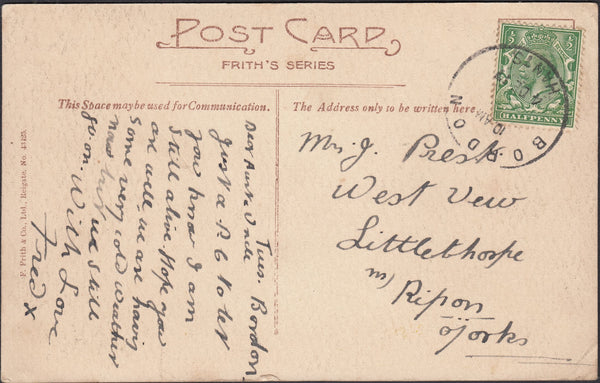 POST CARD
FRITH'S SERIES
This Space may be used for Communication.
The Address only to be written here.
Tues. Bordon
Dear Aunt & Uncle
Just a P.C to let
you know I am
still alive. Hope you
are well. we are having
some very cold weather
now but we still
go on. With Love
Fred x
Mrs J. Prest.
West Vew
Littlethorpe
nr) Ripon
Yorks
BORDON
10 AM
HALFPENNY
½
½
F. Frith & Co., Ltd., Reigate. No.